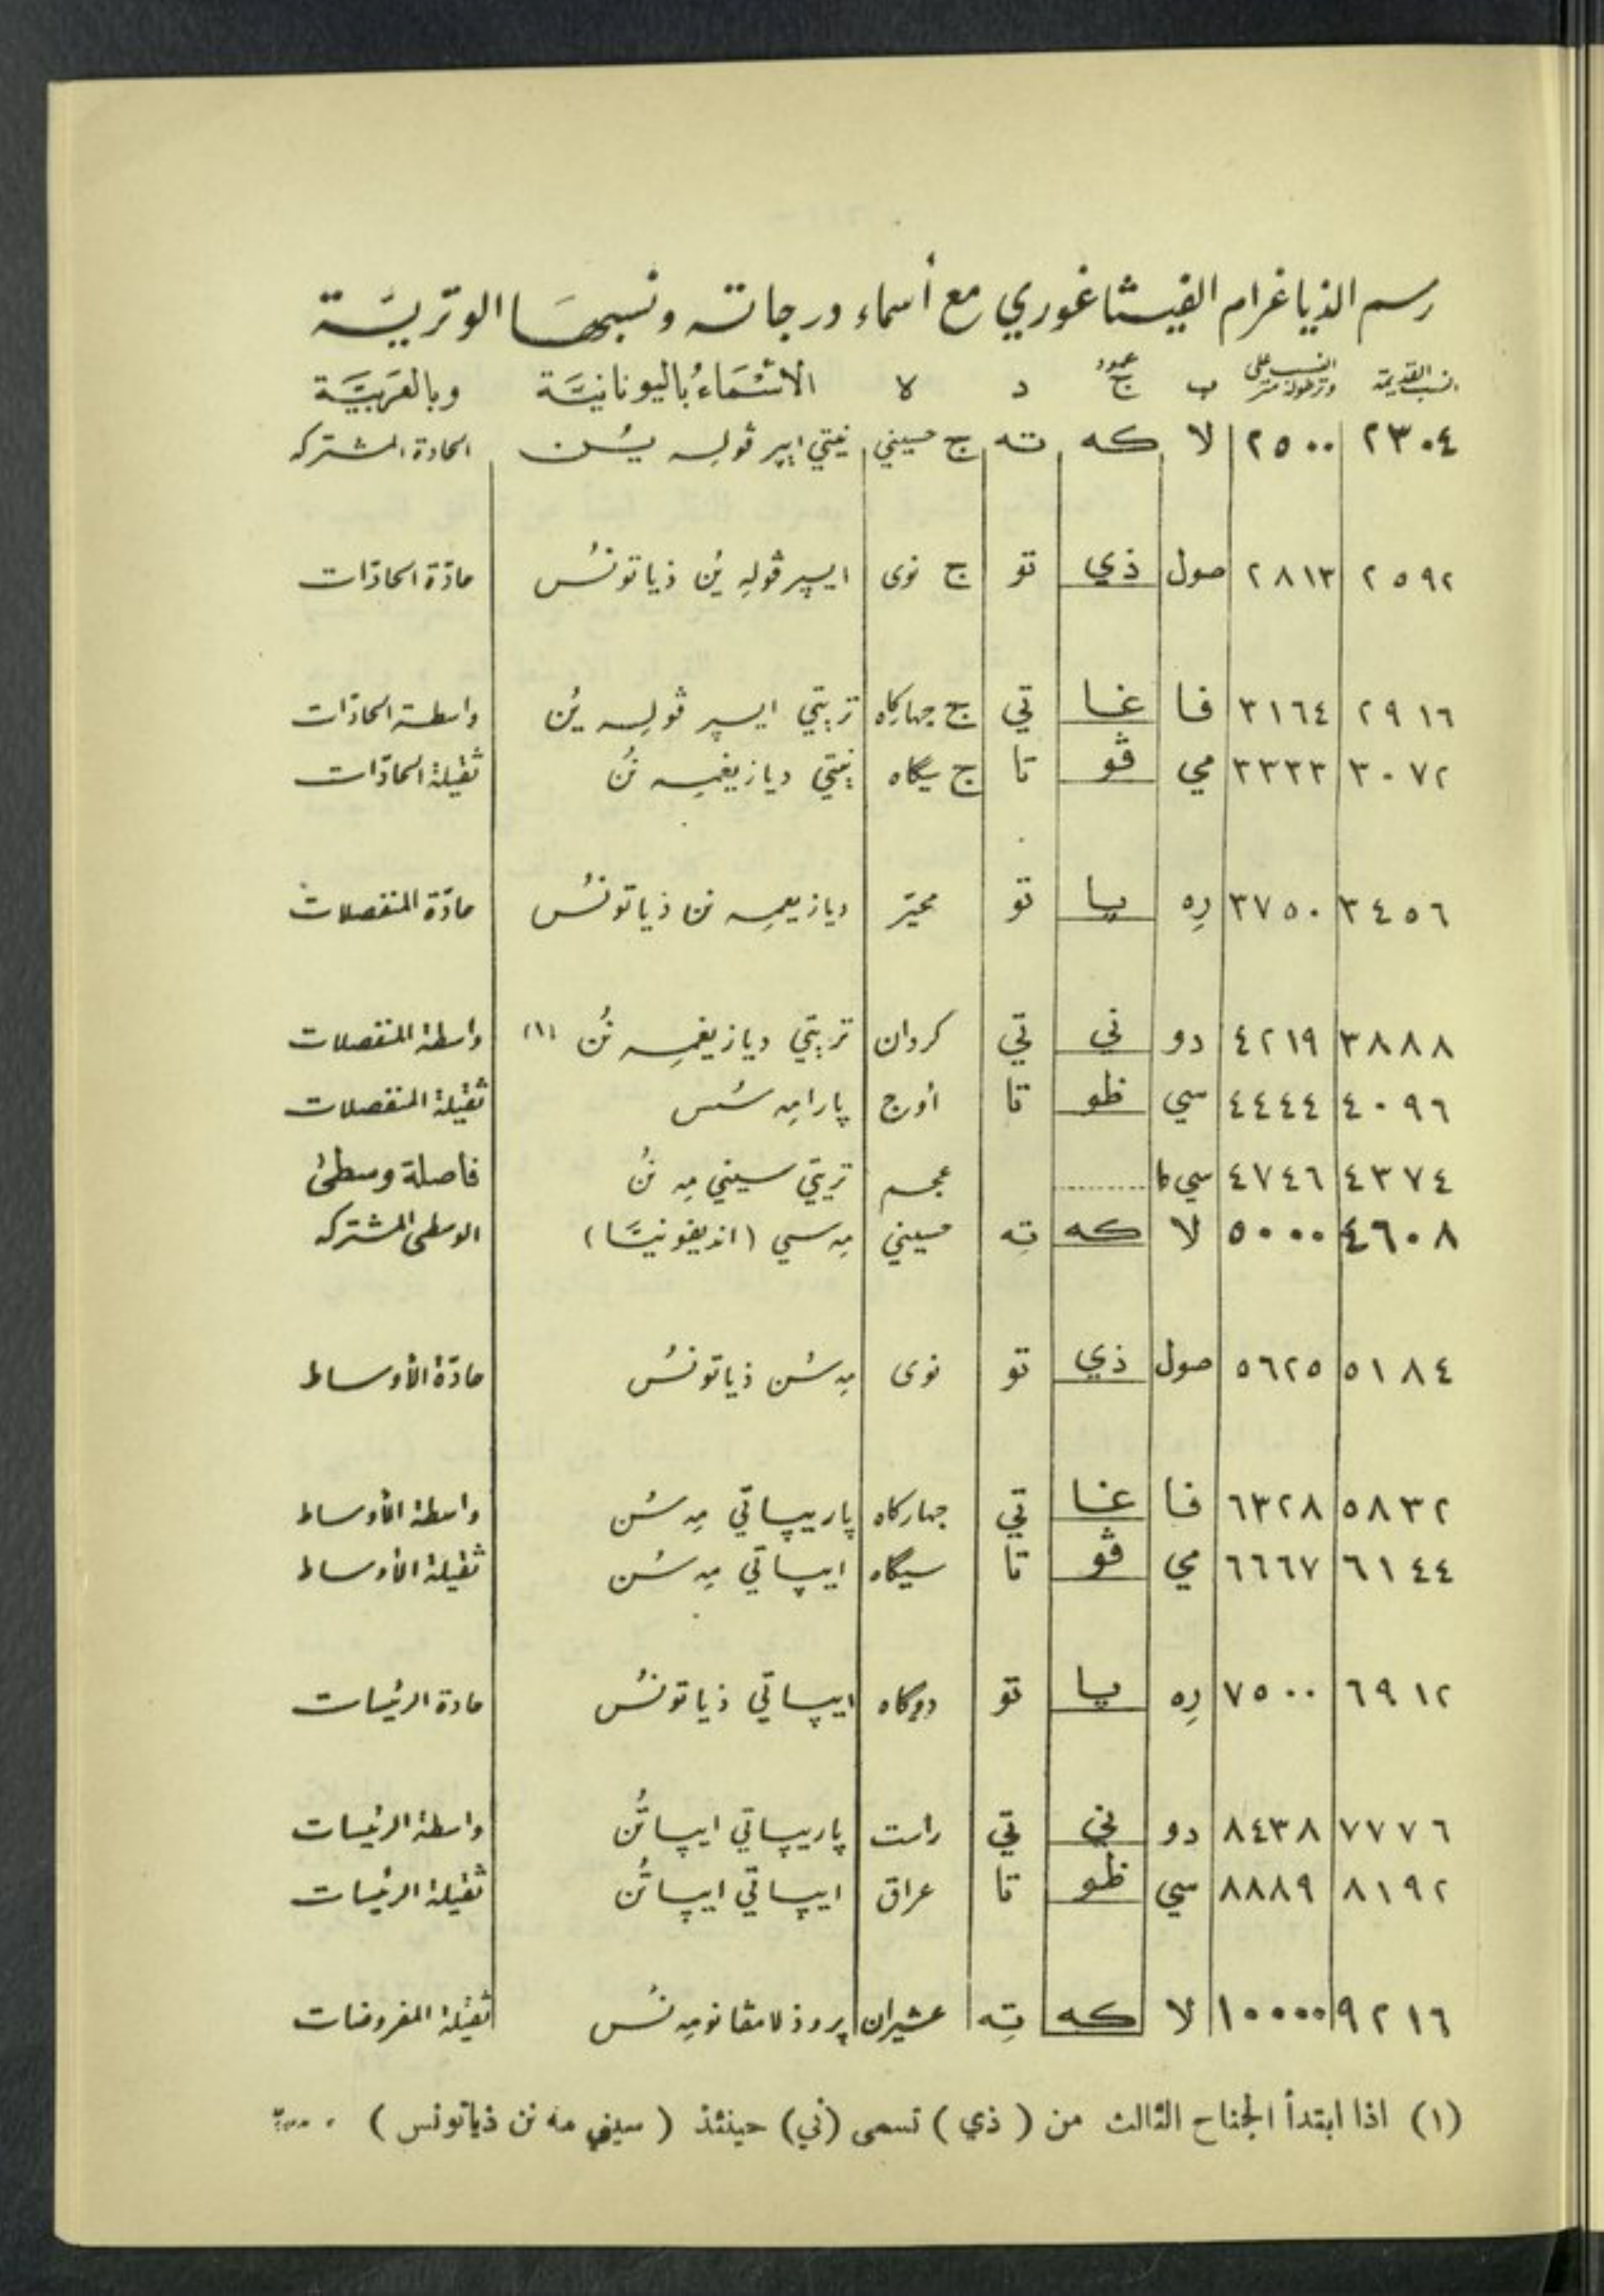 رسم الذياغرام الفيثاغوري مع أسماء درجاته ونسبها الوتريّة
النسب القديمة النسب على وتر طوله متر ب عمود ج د ه الأسْمَاءُ باليونانيَّة وبالعَرَبيَّة
٢٣٠٤ ٢٥٠٠ لا كه ته ج حسيني نيتي ايپرڤولِه يُن الحادة المشتركه
٢٥٩٢ ٢٨١٣ صول ذي تو ج نوى ايپرڤولِه يُن ذياتونُس حادّة الحادّات
٢٩١٦ ٣١٦٤ فا غا تي ج جهاركاه تريتي ايپرڤولِه يُن واسطة الحادّات
٣٠٧٢ ٣٣٣٣ مي ڤو تا ج سيگاه نيتي ديازيغمِه نُن ثقيلة الحادّات
٣٤٥٦ ٣٧٥٠ رِه پا تو محيّر ديازيغمِه نن ذياتونُس حادّة المنفصلات
٣٨٨٨ ٤٢١٩ دو ني تي كردان تريتي ديازيغمِه نُن (١) واسطة المنفصلات
٤٠٩٦ ٤٤٤٤ سي ظو تا أوج پارامِه سُس ثقيلة المنفصلات
٤٣٧٤ ٤٧٤٦ سي ........ عجم تريتي سينيمِه نُن فاصلة وسطىٰ
٤٦٠٨ ٥٠٠٠ لا كه تِه حسيني مِه سي (انديفونيَّا) الوسطى المشتركه
٥١٨٤ ٥٦٢٥ صول ذي تو نوى مِه سُن ذياتونُس حادّة الأوساط
٥٨٣٢ ٦٣٢٨ فا غا تي جهاركاه پاريپاتي مِه سُن واسطة الأوساط
٦١٤٤ ٦٦٦٧ مي ڤو تا سيگاه ايپاتي مِه سُن ثقيلة الأوساط
٦٩١٢ ٧٥٠٠ رِه پا تو دوگاه ايپاتي ذياتونُس حادة الرئيسات
٧٧٧٦ ٨٤٣٨ دو ني تي راست پاريپاتي ايپاتُن واسطة الرئيسات
٨١٩٢ ٨٨٨٩ سي ظو تا عراق ايپاتي ايپاتُن ثقيلة الرئيسات
٩٢١٦ ١٠٠٠٠ لا كه تِه عشيران پروذلامڤانومِه نُس ثقيلة المفروضات
(١) اذا ابتدأ الجناح الثالث من (ذي) تسمى (ني) حينئذ (سيني مه نن ذياتونس) .